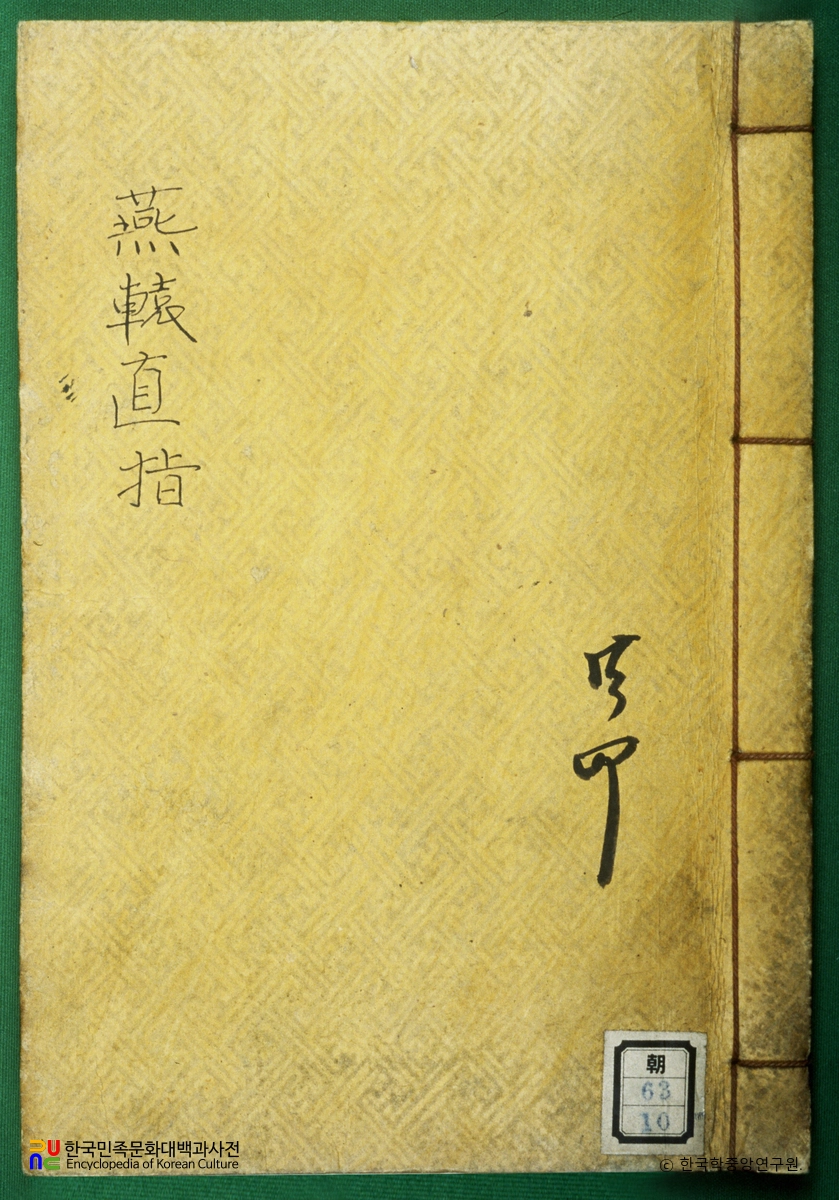 燕轅直指
朝
63
10
한국민족문화대백과사전
Encyclopedia of Korean Culture
© 한국학중앙연구원.